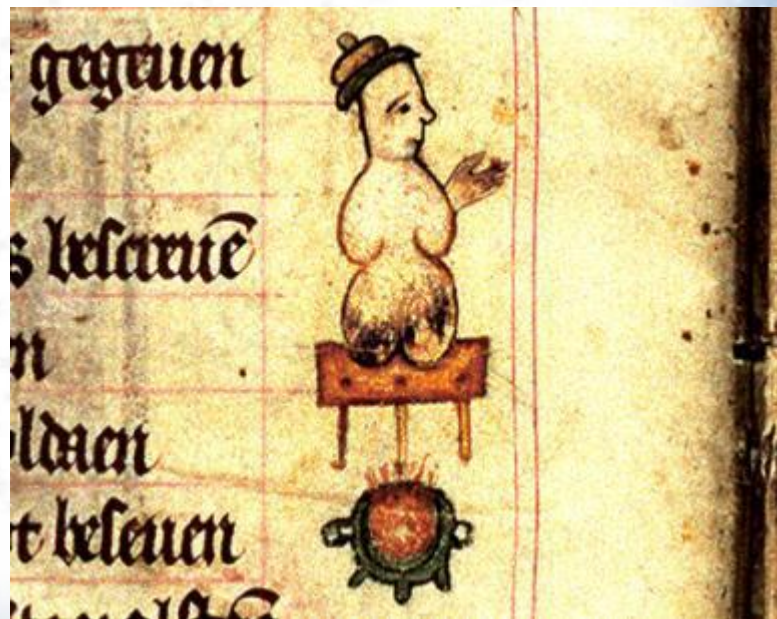 gegeuen
s bescreuē
n
oldaen
t beseuen